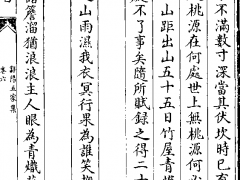 不滿數寸深當其伏坎時已有
桃源在何處世上無桃源何必
山距出山五十五日竹屋青燈
縱不了事矣隨所賦錄之得二十
山雨濕我衣冥行果為誰笑撫
諸簷溜猶浪浪主人眼為青熾